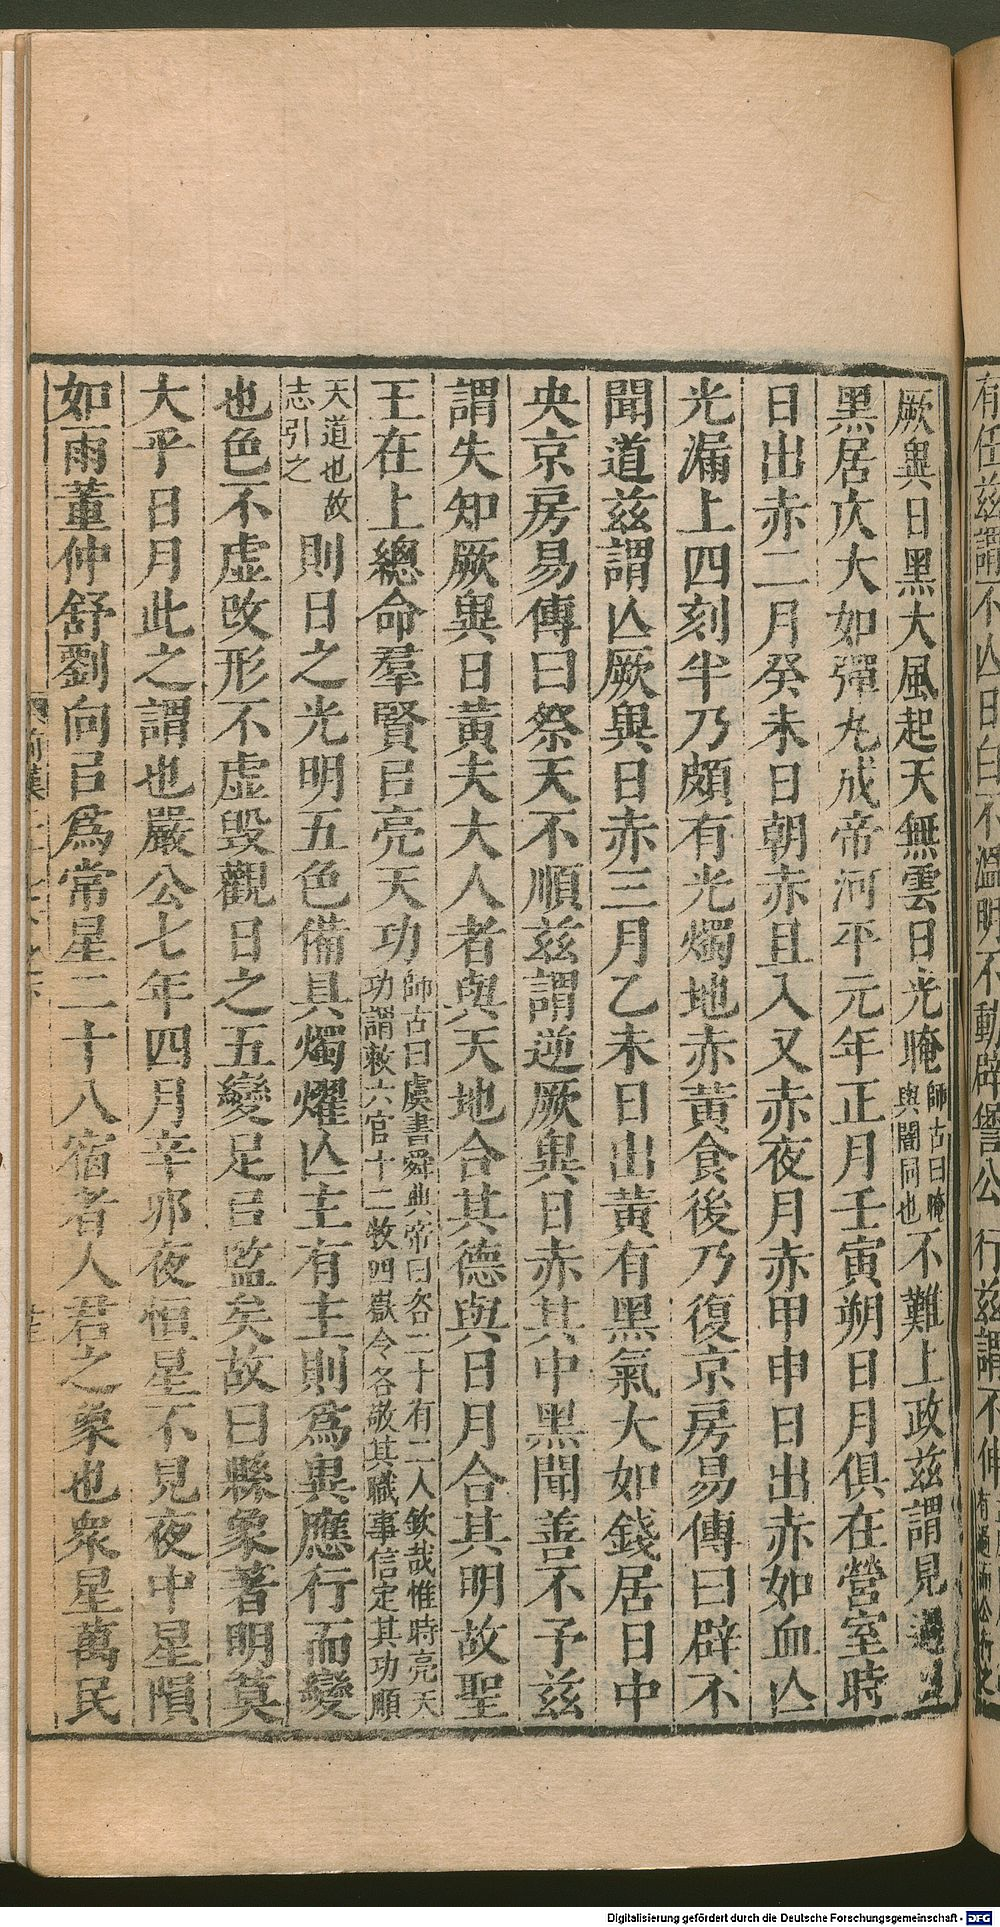 厥異日黑大風起天無雲日光晻師古曰晻與闇同也不難上政茲謂見過日
黑居仄大如彈丸成帝河平元年正月壬寅朔日月俱在營室時
日出赤二月癸未日朝赤且入又赤夜月赤甲申日出赤如血亾
光漏上四刻半乃頗有光燭地赤黃食後乃復京房易傳曰辟不
聞道茲謂亾厥異日赤三月乙未日出黃有黑氣大如錢居日中
央京房易傳曰祭天不順茲謂逆厥異日赤其中黑聞善不予茲
謂失知厥異日黃夫大人者與天地合其德與日月合其明故聖
王在上總命羣賢㠯亮天功師古曰虞書舜典帝曰咨二十有二人欽哉惟時亮天功謂敕六官十二牧四嶽令各敬其職事信定其功順
天道也故志引之則日之光明五色備具燭燿亾主有主則爲異應行而變
也色不虛改形不虛毁觀日之五變足㠯監矣故曰縣象著明莫
大乎日月此之謂也嚴公七年四月辛夘夜恒星不見夜中星隕
如雨董仲舒劉向㠯爲常星二十八宿者人君之象也衆星萬民
Digitalisierung gefördert durch die Deutsche Forschungsgemeinschaft - DFG